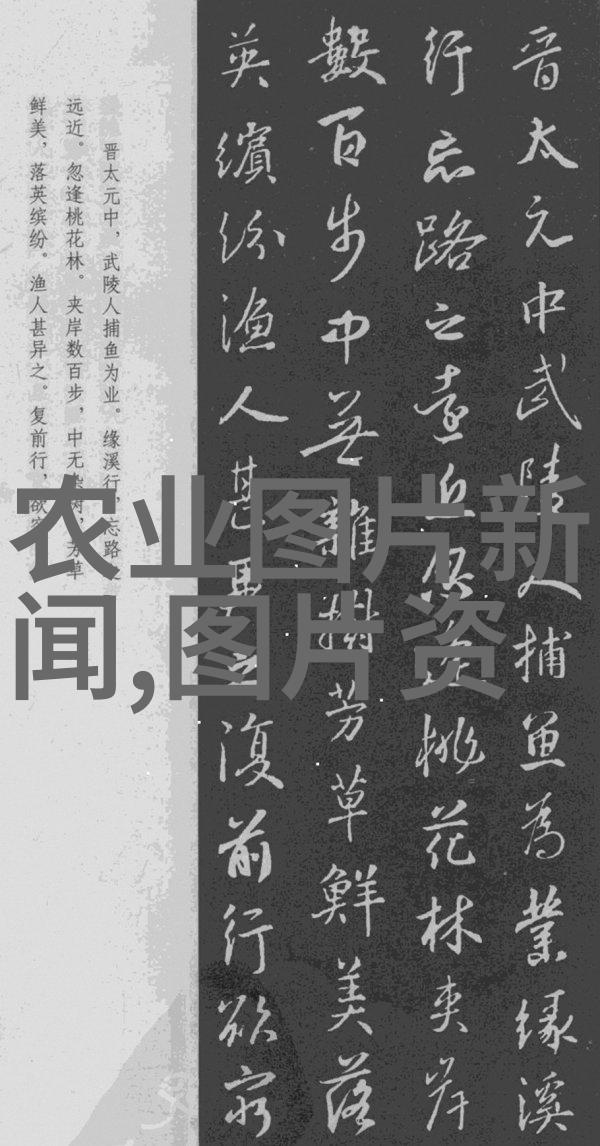 晋太元中武陵人捕鱼为業缘溪
行忘路之遠近忽逢桃花林夹岸
數百步中無雜樹芳草鮮美落
英繽纷渔人甚異之復前行欲穷
晋太元中，武陵人捕鱼为业。缘溪行，忘路之
远近。忽逢桃花林。夹岸数百步，中无杂树，芳草
鲜美，落英缤纷。渔人甚异之。复前行，欲穷
农业图片新
闻,图片资